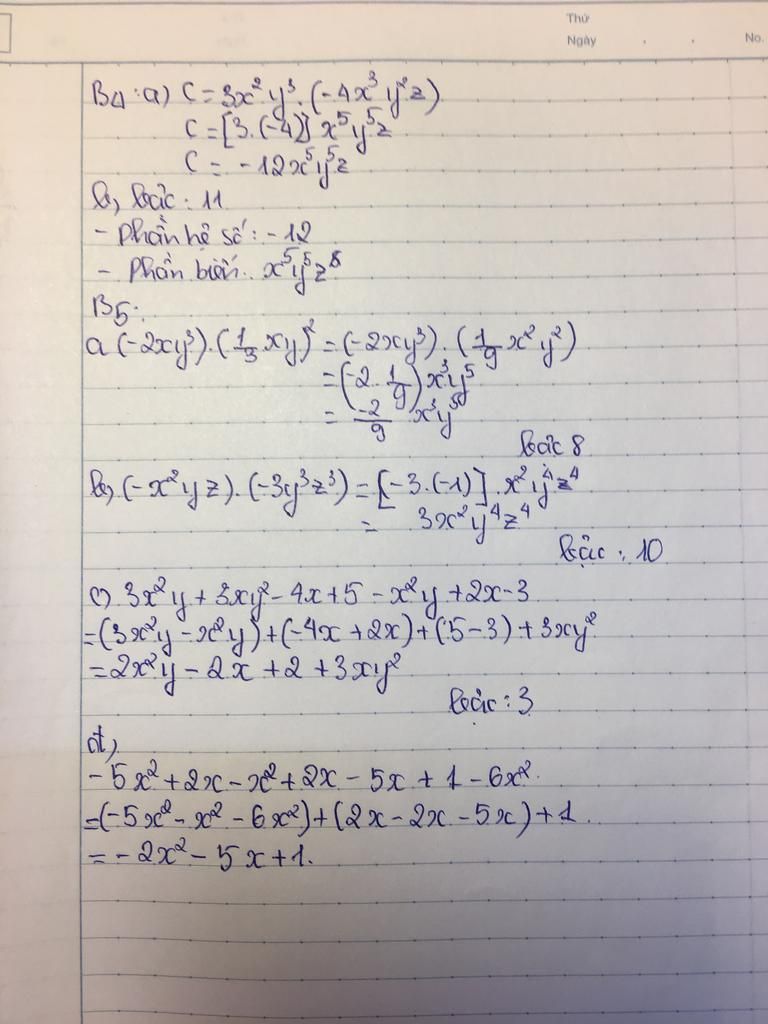 Thứ
Ngày . . No.
B4: a) C = 3x²y³.(-4x³y²z)
C = [3.(-4)] x⁵y⁵z
C = -12x⁵y⁵z
b, bậc: 11
- Phần hệ số: -12
- Phần biến: x⁵y⁵z
B5:
a (-2xy³).(1/3 xy)² = (-2xy³).(1/9 x²y²)
= (-2.1/9) x³y⁵
= -2/9 x³y⁵
bậc 8
b, (-x²yz).(-3y³z³) = [-3.(-1)].x²y⁴z⁴
= 3x²y⁴z⁴
bậc: 10
c) 3x²y + 3xy² - 4x + 5 - x²y + 2x - 3
= (3x²y - x²y) + (-4x + 2x) + (5 - 3) + 3xy²
= 2x²y - 2x + 2 + 3xy²
bậc: 3
d,
- 5x² + 2x - x² + 2x - 5x + 1 - 6x².
= (-5x² - x² - 6x²) + (2x - 2x - 5x) + 1.
= - 2x² - 5x + 1.